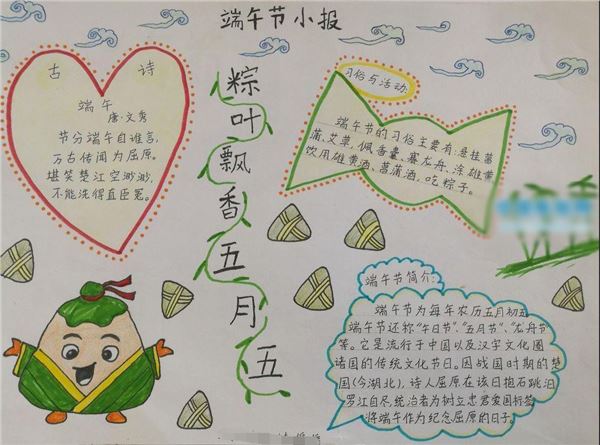 端午节小报
古 诗
端午
唐·文秀
节分端午自谁言,
万古传闻为屈原。
堪笑楚江空渺渺,
不能洗得直臣冤。
粽叶飘香五月五
习俗与活动
端午节的习俗主要有:悬挂菖
蒲、艾草,佩香囊,赛龙舟,涂雄黄
饮用雄黄酒、菖蒲酒,吃粽子。
端午节简介:
端午节为每年农历五月初五
端午节还称“午日节”、“五月节”、“龙舟节”
等。它是流行于中国以及汉字文化圈
诸国的传统文化节日。因战国时期的楚
国(今湖北),诗人屈原在该日抱石跳汨
罗江自尽,统治者为树立忠君爱国标签
将端午作为纪念屈原的日子。